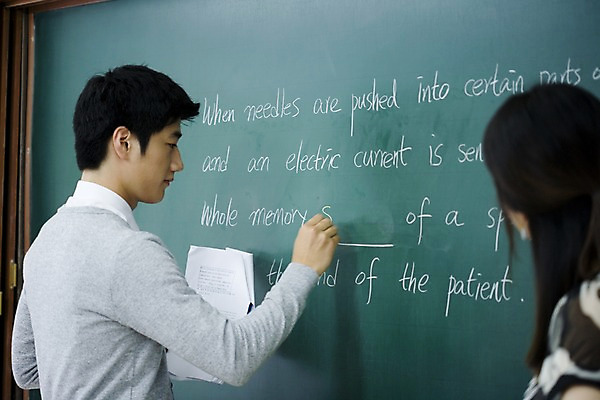 When needles are pushed into certain parts
and an electric current is
whole memory s ___ of a
of the patient.